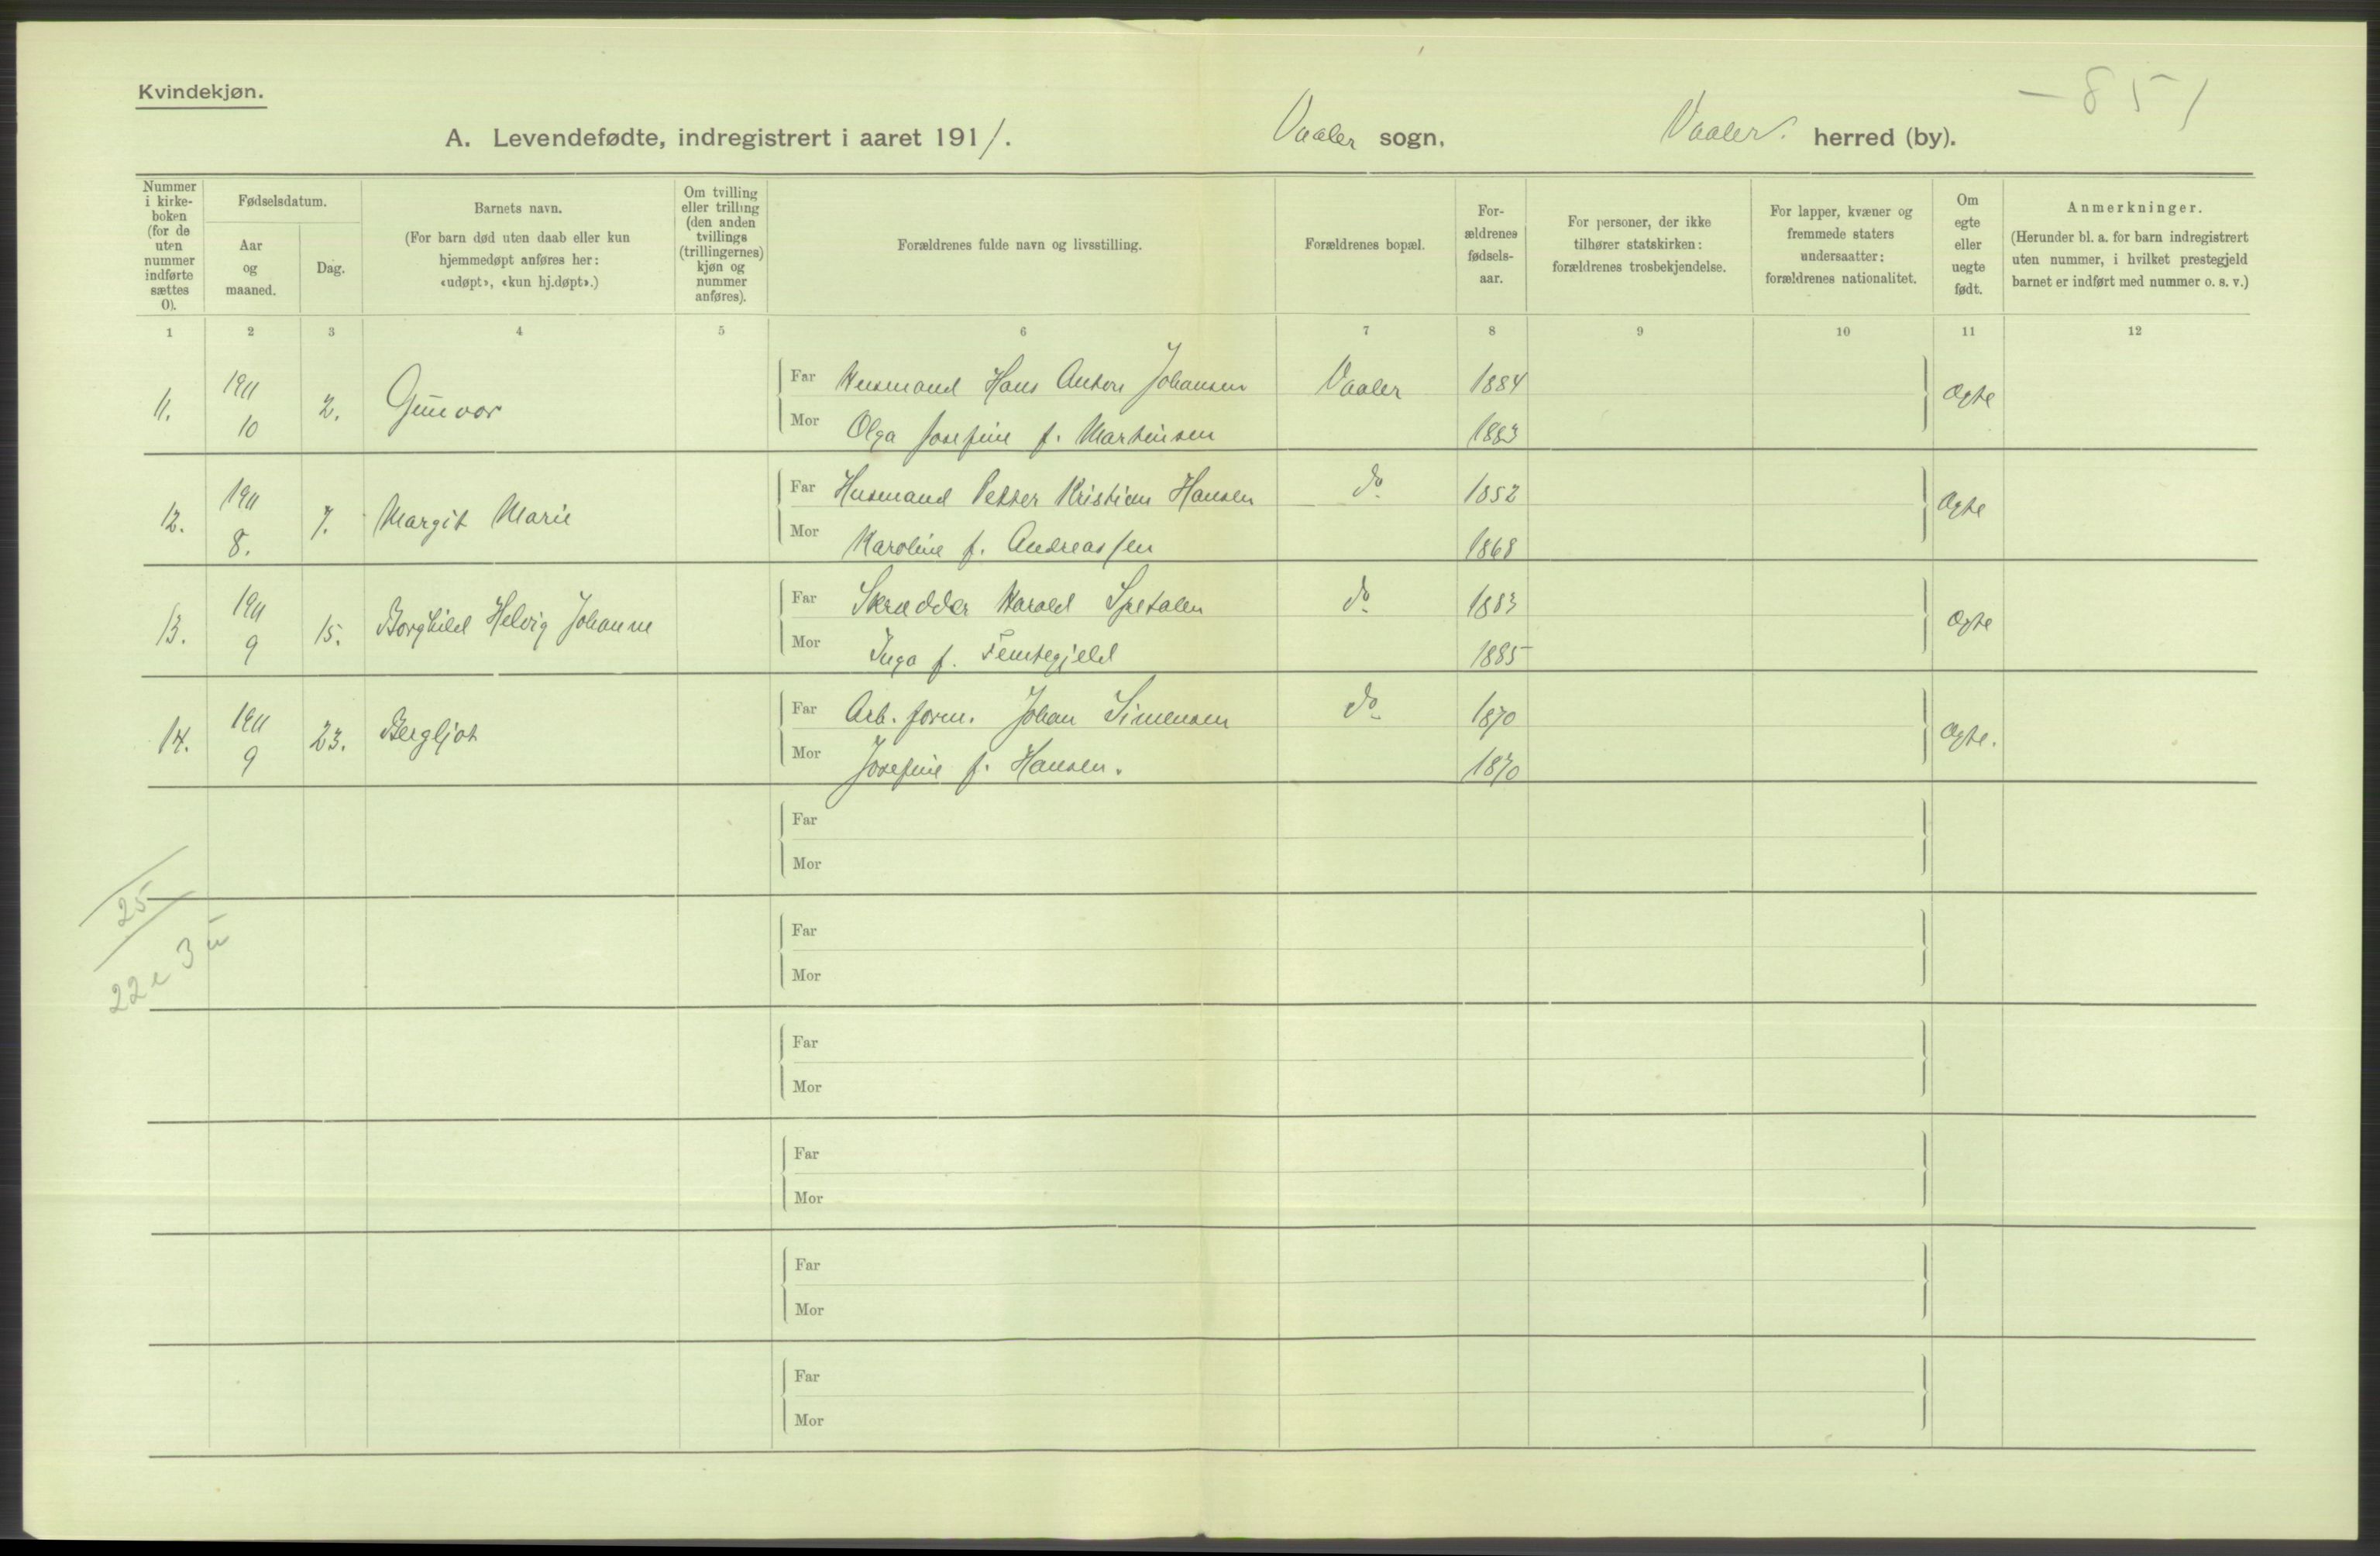 Kvindekjøn.
— 851
A. Levendefødte, indregistrert i aaret 1911. Vaaler sogn, Vaaler. herred (by).
Nummer i kirke-boken (for de uten nummer indførte sættes 0).
Fødselsdatum.
Aar og maaned.
Dag.
Barnets navn.
(For barn død uten daab eller kun
hjemmedøpt anføres her:
«udøpt», «kun hj.døpt».)
Om tvilling
eller trilling
(den anden
tvillings
(trillingernes)
kjøn og
nummer
anføres).
Forældrenes fulde navn og livsstilling.
Forældrenes bopæl.
For-
ældrenes
fødsels-
aar.
For personer, der ikke
tilhører statskirken:
forældrenes trosbekjendelse.
For lapper, kvæner og
fremmede staters
undersaatter:
forældrenes nationalitet.
Om
egte
eller
uegte
født.
Anmerkninger.
(Herunder bl. a. for barn indregistrert
uten nummer, i hvilket prestegjeld
barnet er indført med nummer o. s. v.)
1 2 3 4 5 6 7 8 9 10 11 12
11. 1911 10 2. Gunvor
Far Husmand Hans Anton Johansen Vaaler 1884 Ægte
Mor Olga Josefine f. Martinsen 1883
12. 1911 8. 7. Margit Marie
Far Husmand Petter Kristian Hansen do 1852 Ægte
Mor Karoline f. Andreassen 1868
13. 1911 9 15. Borghild Helvig Johanne
Far Skrædder Harald Spetalen do 1883 Ægte
Mor Inga f. Femtegjeld 1885
14. 1911 9 23. Bergljot
Far Arb. form. Johan Simensen do 1870 Ægte.
Mor Josefine f. Hansen. 1870
Far
Mor
25
Far
22 e 3 u
Mor
Far
Mor
Far
Mor
Far
Mor
Far
Mor